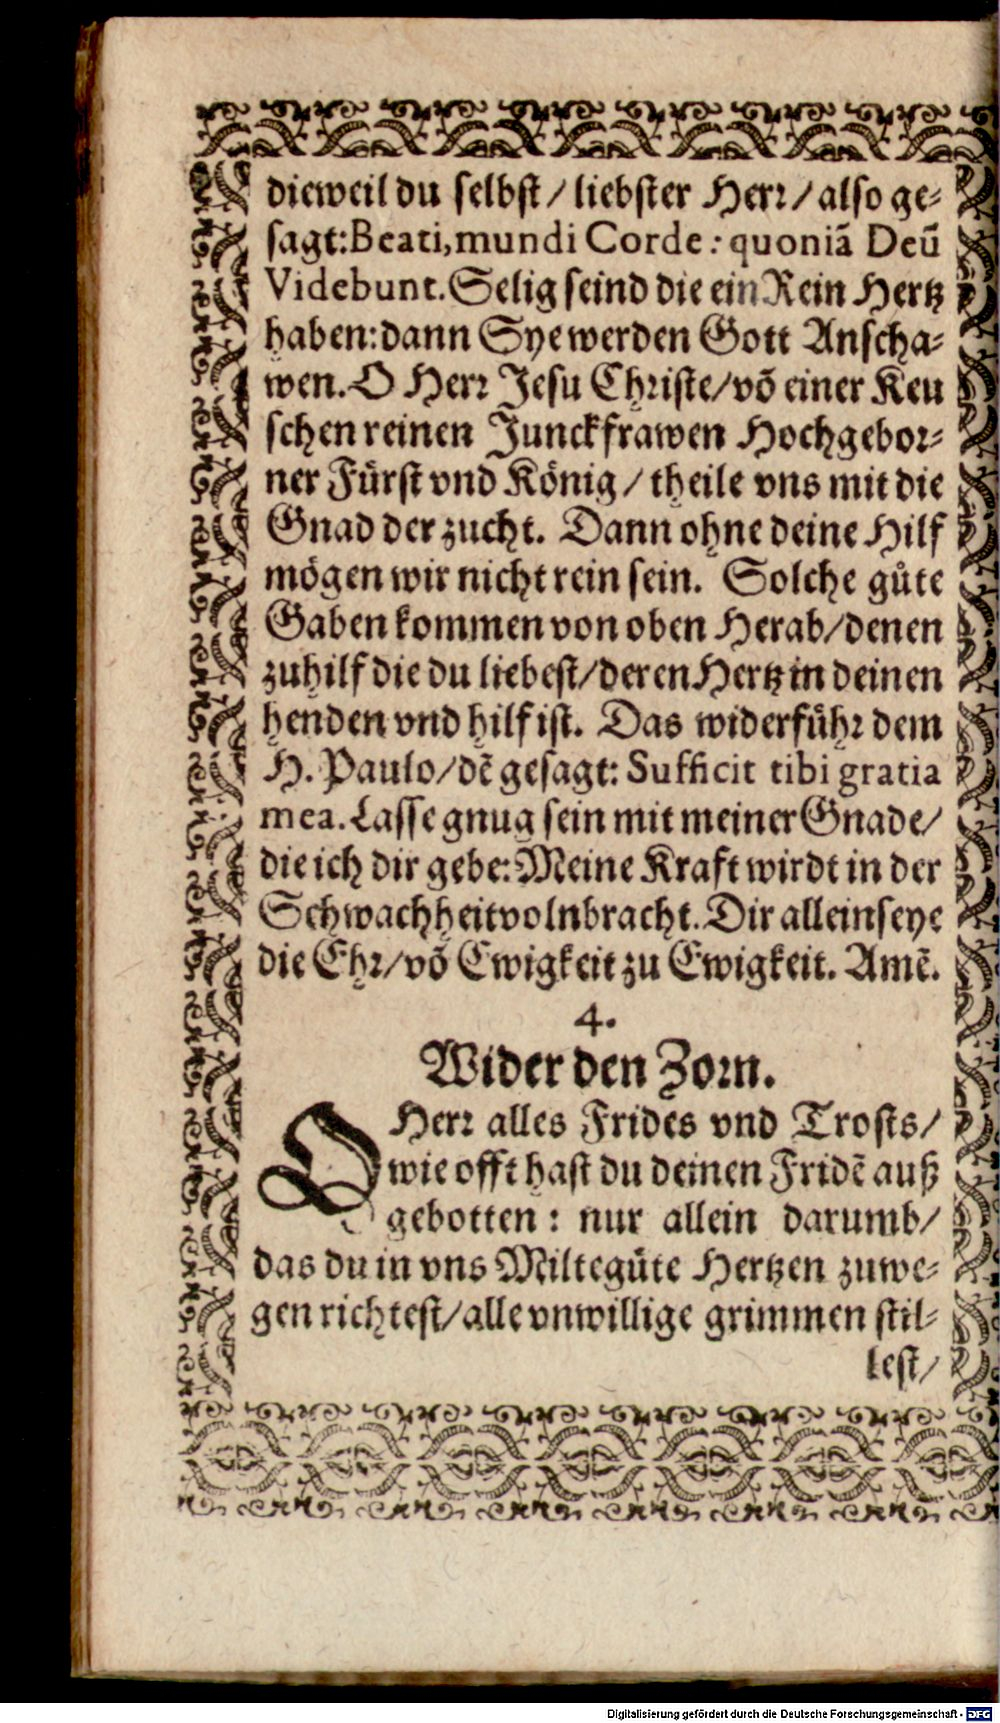 dieweil du selbst / liebster Herr / also ge⸗
sagt: Beati, mundi Corde: quoniã Deũ
Videbunt. Selig seind die ein Rein Hertz
haben: dann Sye werden Gott Anscha⸗
wen. O Herr Jesu Christe / võ einer Keu
schen reinen Junckfrawen Hochgebor⸗
ner Fürst vnd König / theile vns mit die
Gnad der zucht. Dann ohne deine Hilf
mögen wir nicht rein sein. Solche gůte
Gaben kommen von oben Herab / denen
zuhilf die du liebest / deren Hertz in deinen
henden vnd hilf ist. Das widerfůhr dem
H. Paulo / dẽ gesagt: Sufficit tibi gratia
mea. Lasse gnug sein mit meiner Gnade /
die ich dir gebe: Meine Kraft wirdt in der
Schwachheit volnbracht. Dir allein seye
die Ehr / võ Ewigkeit zu Ewigkeit. Amẽ.
4.
Wider den Zorn.
O Herr alles Frides vnd Trosts /
wie offt hast du deinen Fridẽ auß
gebotten : nur allein darumb /
das du in vns Miltegůte Hertzen zuwe⸗
gen richtest / alle vnwillige grimmen stil⸗
lest /
Digitalisierung gefördert durch die Deutsche Forschungsgemeinschaft - DFG